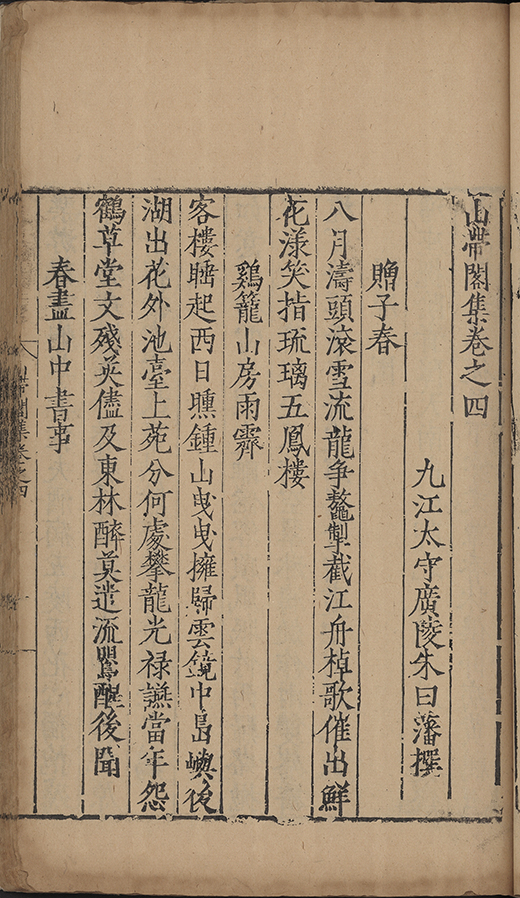 山帶閣集卷之四
九江太守廣陵朱曰藩撰
贈子春
八月濤頭滚雪流龍爭鼇掣截江舟棹歌催出鮮
花漾笑指琉璃五鳳樓
鷄籠山房雨霽
客樓睡起西日曛鍾山曳曳擁歸雲鏡中島嶼後
湖出花外池臺上苑分何處攀龍光禄讌當年怨
鶴草堂文殘英儘及東林醉莫遣流鶯醒後聞
春盡山中書事
山帶閣集卷之四